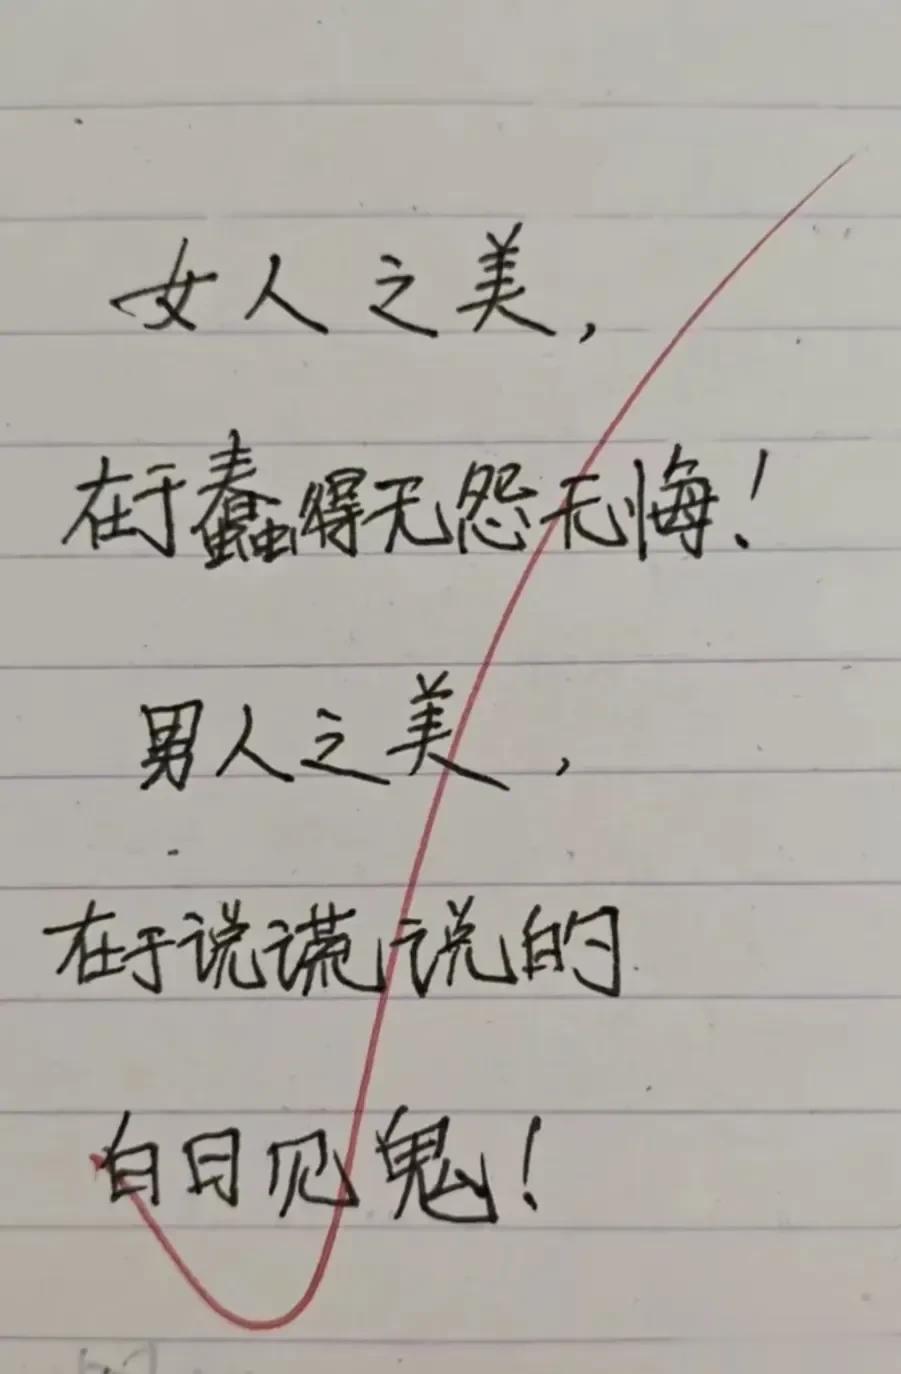 女人之美，
在于蠢得无怨无悔！
男人之美，
在于说谎说的
白日见鬼！